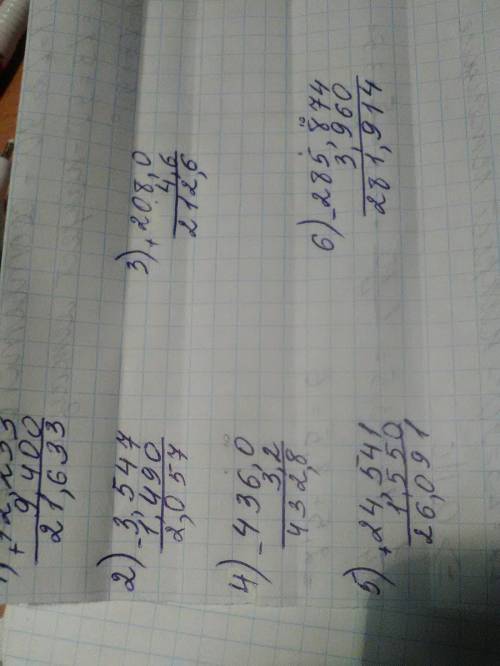 1) + 12,233
9,400
21,633
2) - 3,547
1,490
2,057
3) + 208,0
4,6
212,6
4) - 436,0
3,2
432,8
5) + 24,541
1,550
26,091
6) - 285,874
3,960
281,914